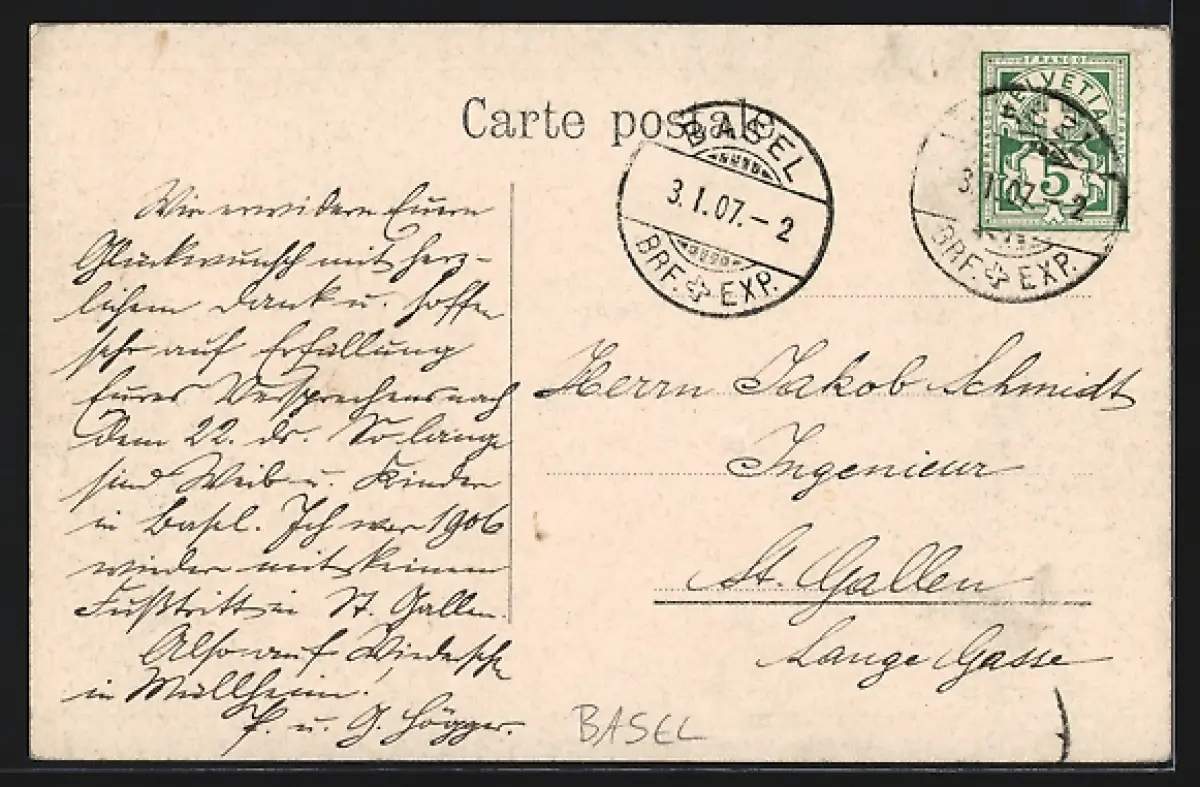 Carte postale
BASEL
3.I.07.-2
BRF. EXP.
FRANCO
HELVETIA
5
3.I.07.-2
BRF. EXP.
Wir erwidern Euern
Glückwunsch mit herz-
lichem Dank u. hoffen
sehr auf Erfüllung
Eures Versprechens nach
dem 22. ds. So lange
sind Weib u. Kinder
in Basel. Ich war 1906
wieder mit keinem
Fußtritt in St. Gallen.
Also auf Wiedersehn
in Müllheim.
P. u. G. Högger.
Herrn Jakob Schmidt
Ingenieur
St. Gallen
Lange Gasse
BASEL